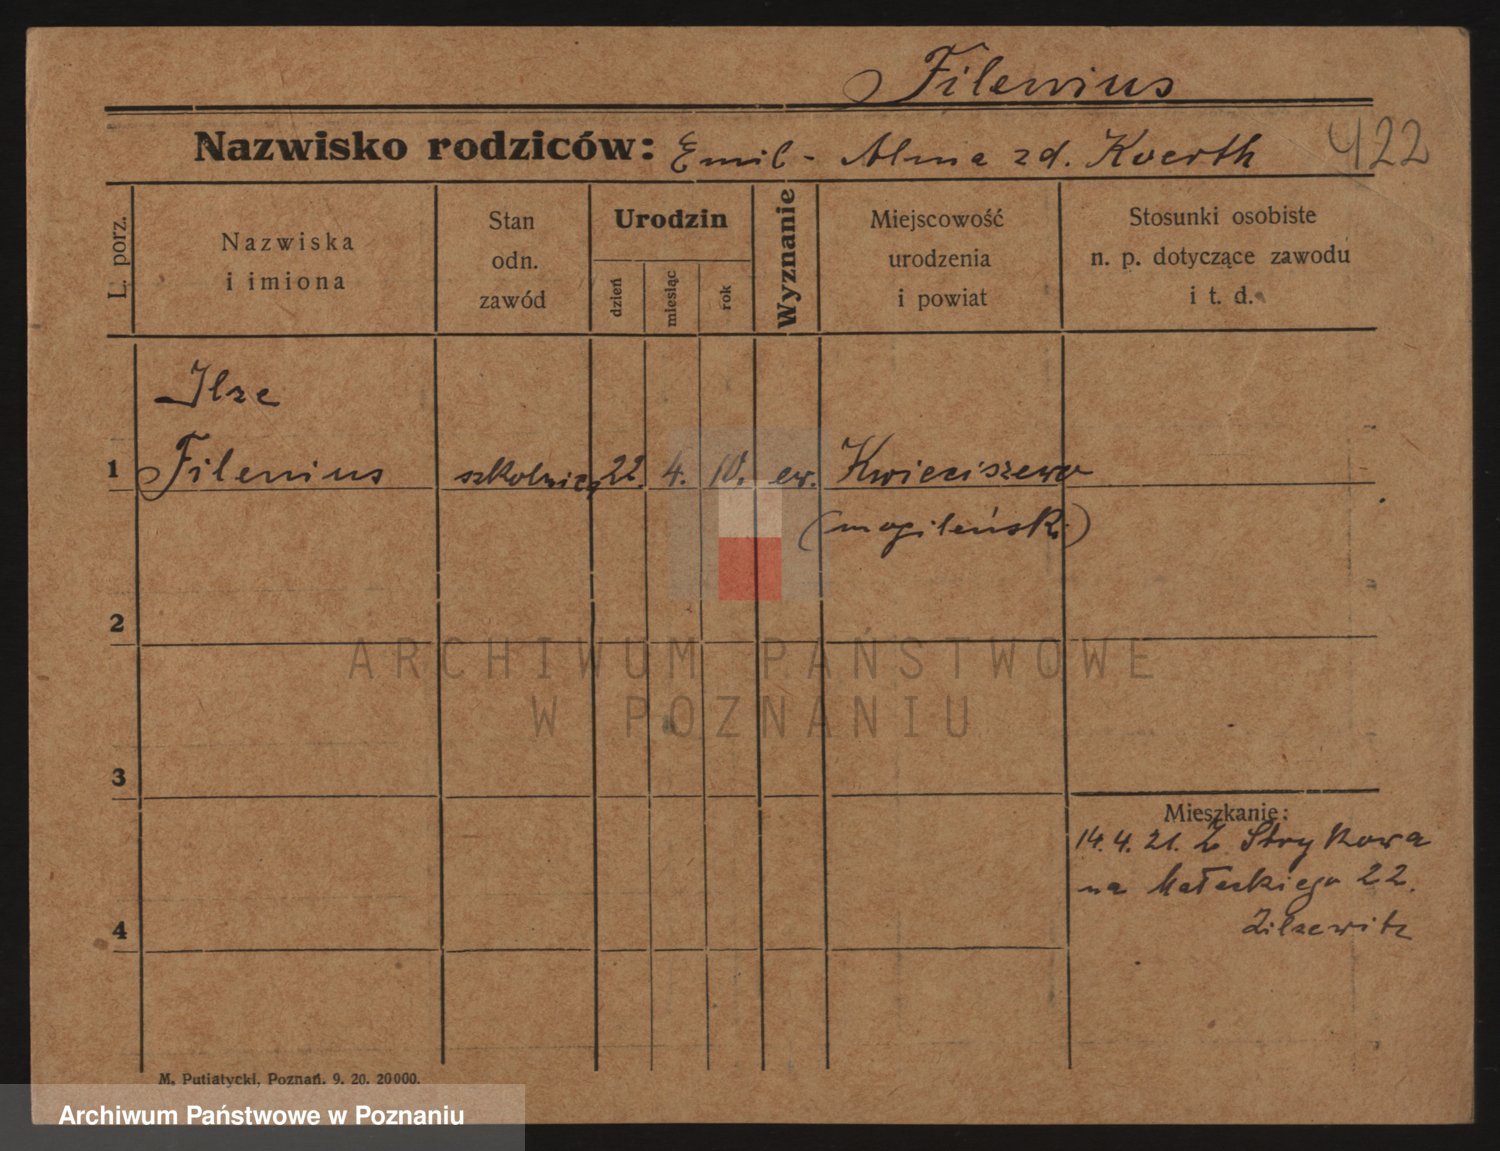 Filenius
Nazwisko rodziców: Emil - Alma zd. Koerth 422
L. porz.
Nazwiska
i imiona
Stan
odn.
zawód
Urodzin
dzień
miesiąc
rok
Wyznanie
Miejscowość
urodzenia
i powiat
Stosunki osobiste
n. p. dotyczące zawodu
i t. d.
Ilse
1 Filenius szkolnica 22. 4. 10. ew. Kwieciszewo
(mogileński)
2
ARCHIWUM PAŃSTWOWE
W POZNANIU
3
Mieszkanie:
14. 4. 21. Z Strykowa
na Małeckiego 22.
4
M. Putiatycki, Poznań. 9. 20. 20000.
Archiwum Państwowe w Poznaniu